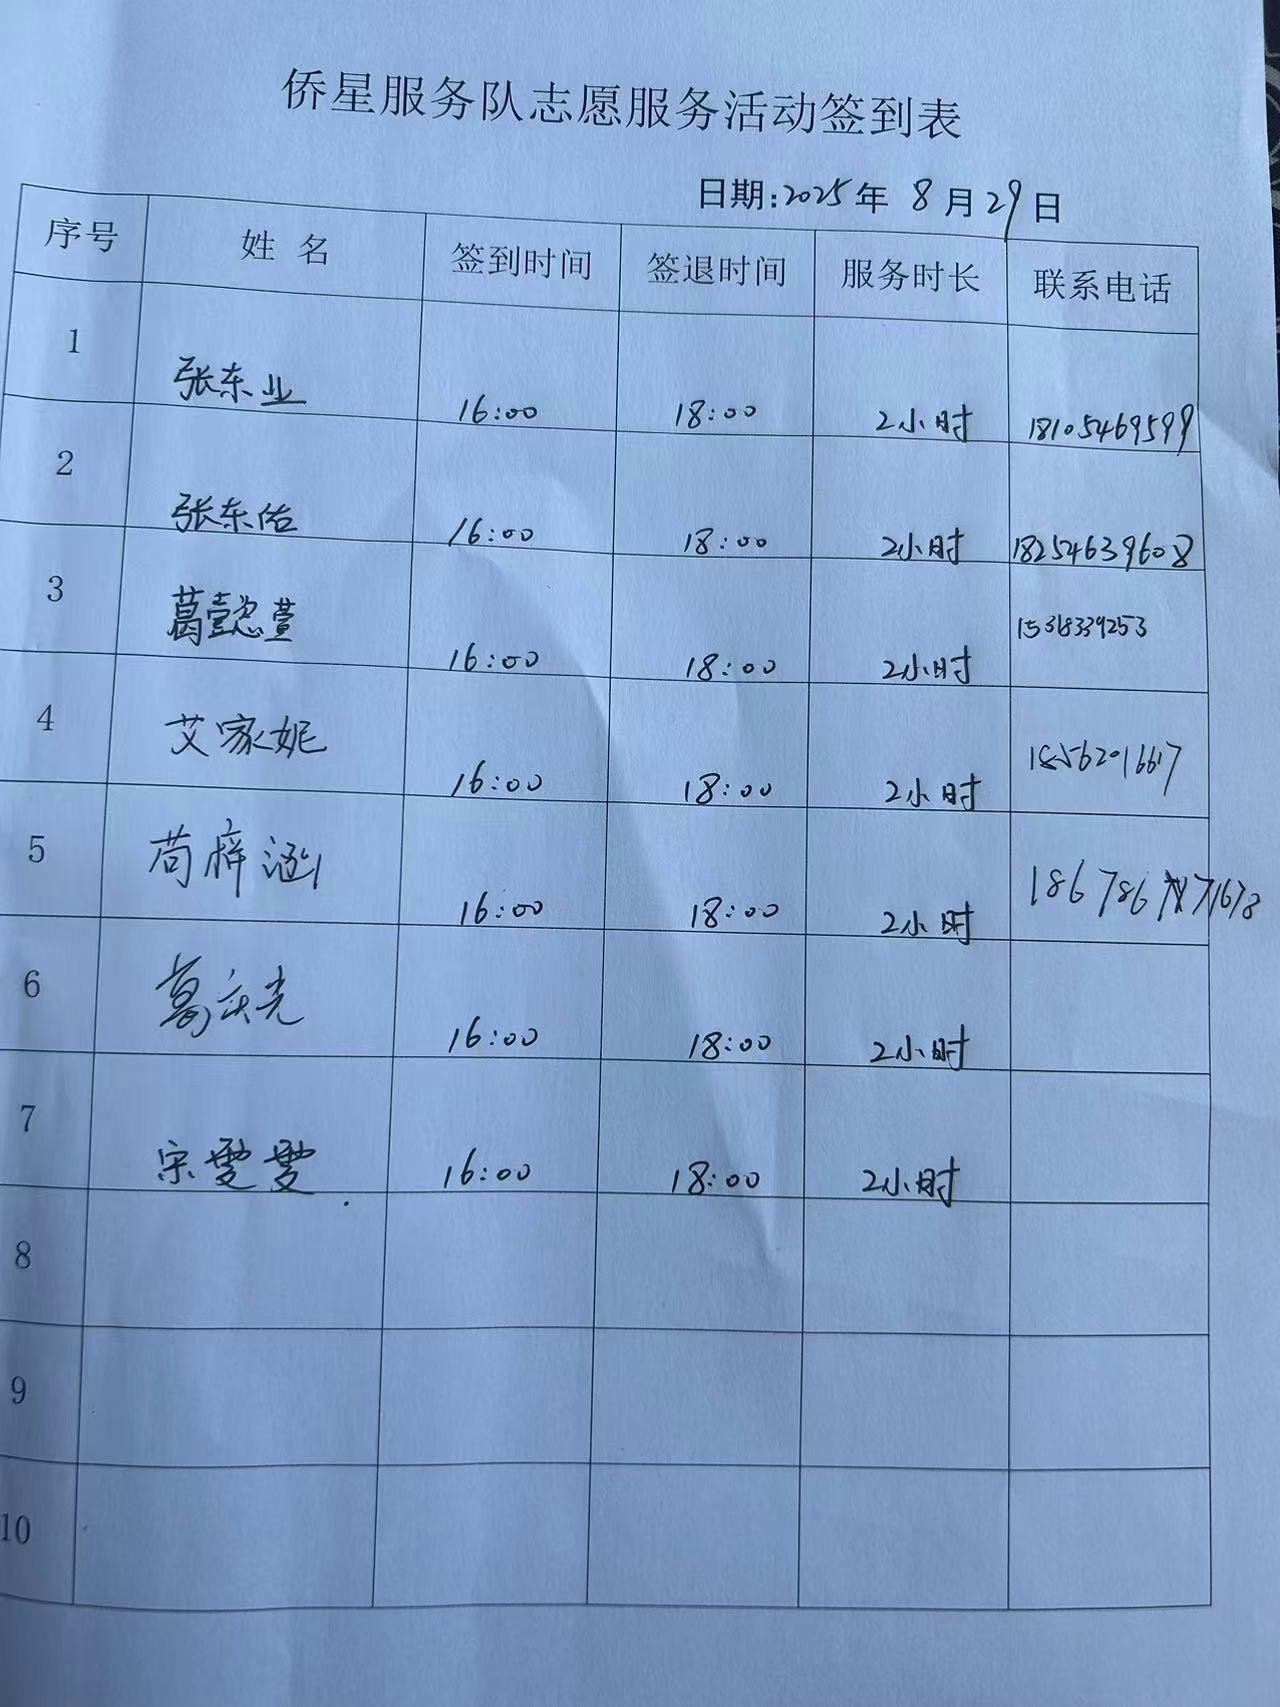 侨星服务队志愿服务活动签到表
日期:2025年 8月29日
序号 姓 名 签到时间 签退时间 服务时长 联系电话
1 张东业 16:00 18:00 2小时 18105469599
2 张东佑 16:00 18:00 2小时 18254639608
3 葛懿萱 16:00 18:00 2小时 15318339253
4 艾家妮 16:00 18:00 2小时
5 苟梓涵 16:00 18:00 2小时
6 葛庆光 16:00 18:00 2小时
7 宋雯雯 16:00 18:00 2小时
8
9
10